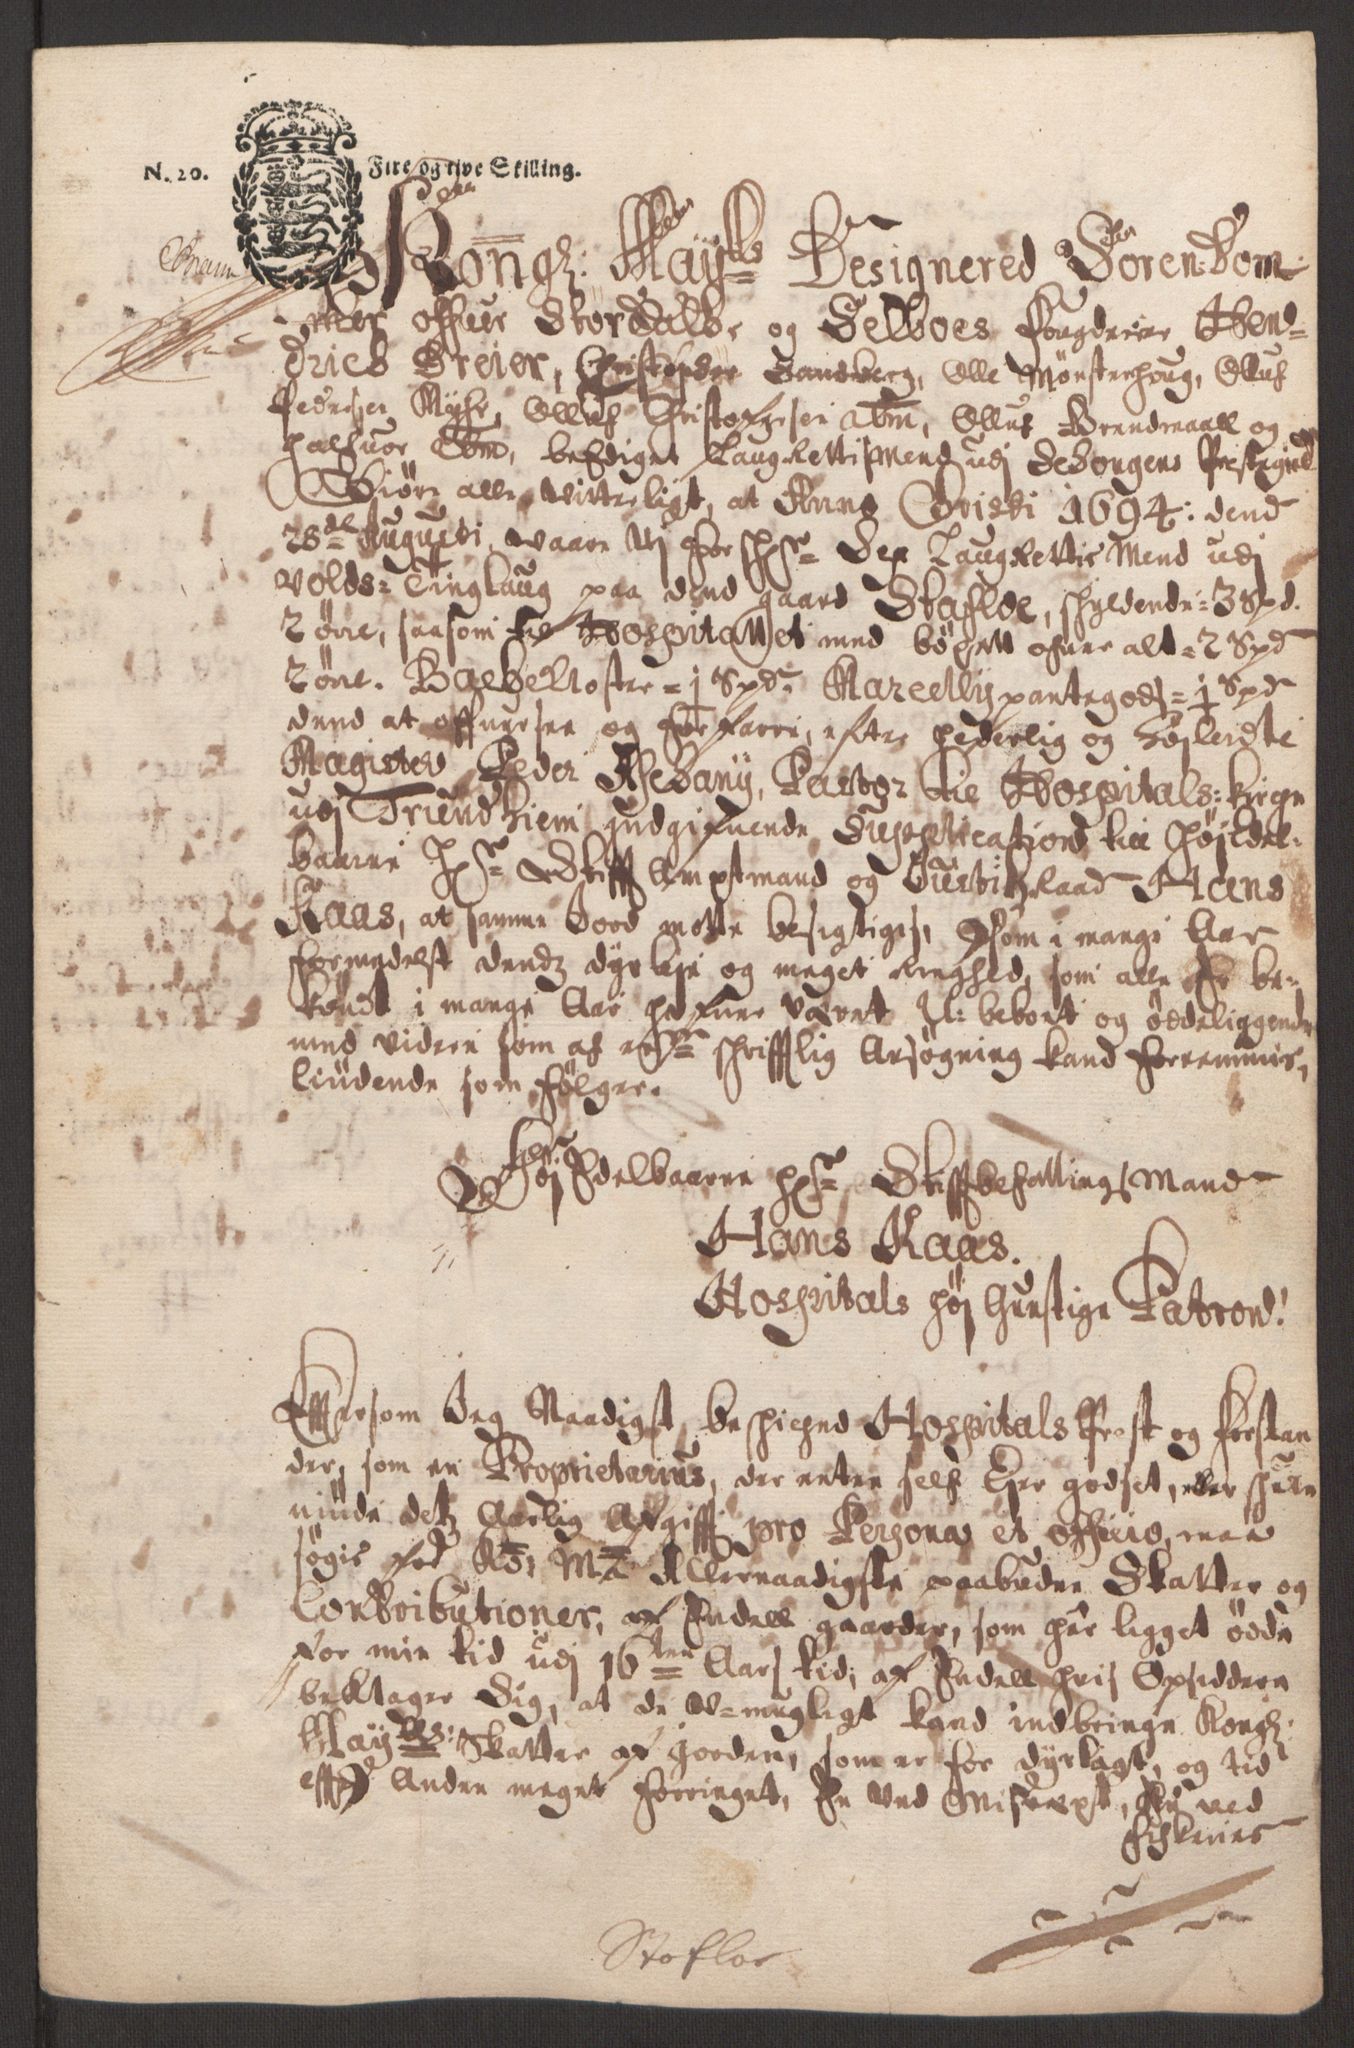 N. 20. Fire og tive Skilling.
Kongl: Mayts Designered Soren-
mer offuer Stördalls og Selboes Fougderie Hend-
rich Greier, Christopher Sandberg, Olle Mönsterhoug, Olluf
Pedersen Myhr, Olluf Christophersen ibm, Olluf Brendmaall og
Halfuor ibm, beEdiget LaugRettismend udj Præstegield
Giöre alle vitterligt, at Anno Christi 1694: dend
28de Augusti, waare Vj for schr. Sex LaugRettis Mend udj
Volds-Tinglaug paa dend gaard Stafloe, schyldende: 3 Spd.
2 öre, saasom til Hospitallet med böxell ofuer alt = 2 Spd
2 öre. Bachecloster = 1 Spd. Marcellij pantegods = 1 Spd
dend at offuersee og forfare, efter hederlig og Höjlerdte
Magister Peder Pastor til Hospitals-kirche
udj Triundhiem indgifuende Supplication till Höjedel-
baarne Hr Stifft Amptmand og Justitz Raad Hans
Kaas, at samme Jord motte besigtiges, som i mange Aar
formedelst dends dyrleje og meget ringhed, som alle er be-
kendt i mange Aar hafuer veret U-beboet og öddeliggende
med videre som af schrifftlig Ansögning kand fornemmes,
liudende som fölger.
Höj Edelbaarne Hr Stiffbefallings Mand
Hans Kaas.
Hospitals höj Gunstige Patron!
Effersom Jeg Naadigst beschicked Hospitals Prest og Forstan
der, som en Proprietarius, der enten self Ejer godset, eller
niude dets Aarlig Afgifft pro Persona et officio, maa
söges for Ko: Ma: Allernaadigste paabudne Skatter og
Contributioner, af Endell gaarder, som her ligget ödde
for min tid udj 16ten Aars tid, af Endell hvis Opsiddere
beklager Sig, at de U-mugligt kand indbringe Kongl:
Mayts: Skatter af Jorden, som er for dyrlagt, og tid
effter Anden meget forringet, En ved Misvext, Nu ved
Fischeries
Stofloe